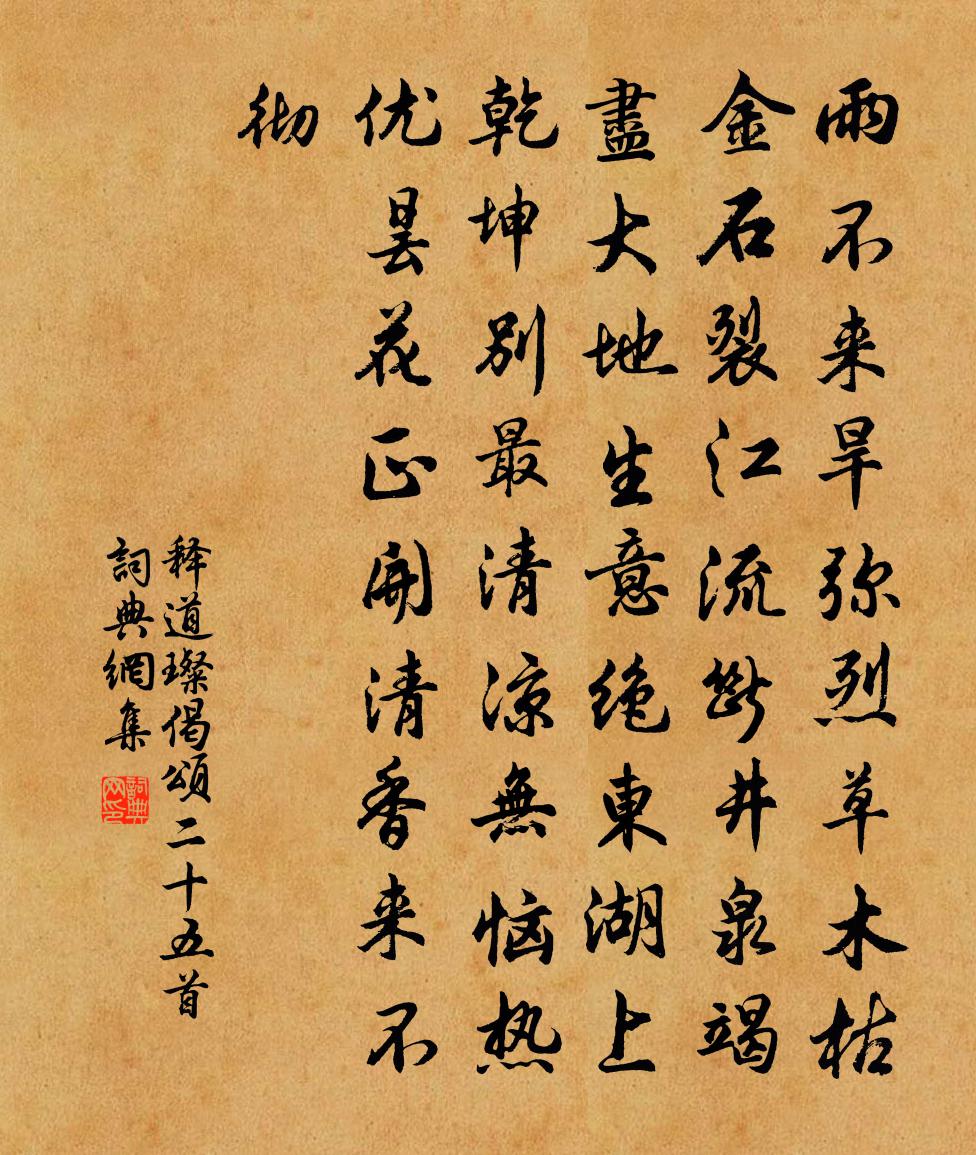 雨不来旱弥烈草木枯
金石裂江流斷井泉竭
盡大地生意绝東湖上
乾坤別最清凉無恼热
优昙花正開清香来不
彻
释道璨偈頌二十五首
詞典網集
詞典网印